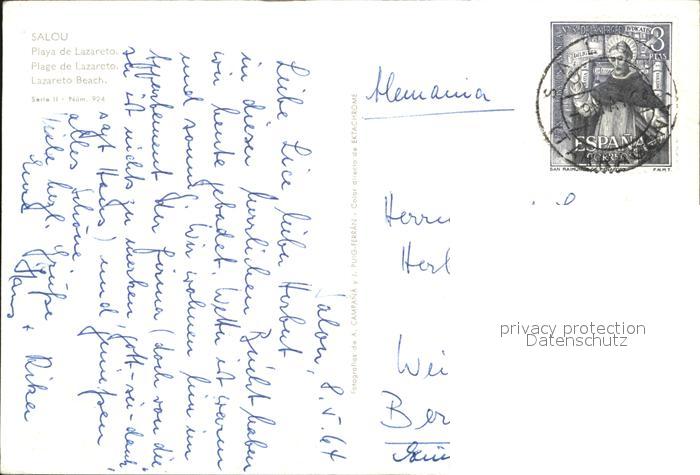 SALOU
Playa de Lazareto.
Plage de Lazareto.
Lazareto Beach.
Serie II - Núm. 924
Salou, 8.V.64
Liebe Lice lieber Herbert
in dieser herrlichen Bucht haben
wir heute gebadet. Wetter ist warm
und sonnig. Wir wohnen hier im
Appartement der Firma (doch von die-
ser ist nichts zu merken, gott-sei-dank,
sagt Hans) und genießen
alles Schöne.
Viele herzl. Grüße
Eure Hans + Rika
Fotografías de A. CAMPAÑA y J. PUIG-FERRÁN - Color directo de EKTACHROME
Alemania
Herrn
Herl
Wei
Ber
3
PTAS
ESPAÑA
CORREOS
SAN RAIMUNDO DE
F.N.M.T.
privacy protection
Datenschutz